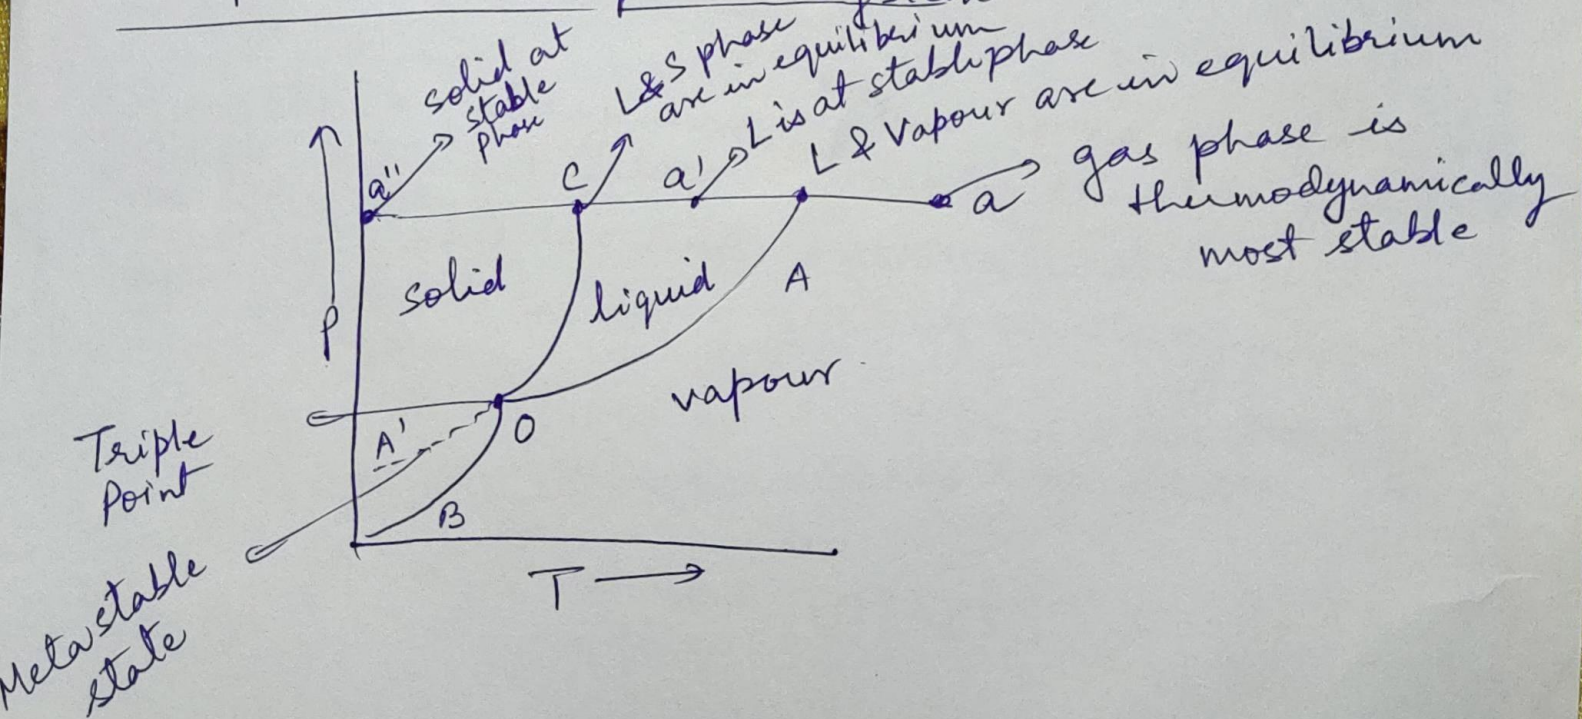 solid at
stable
phase
L&S phase
are in equilibrium
L is at stable phase
L & Vapour are in equilibrium
gas phase is
thermodynamically
most stable
a"
C
a'
a
P
solid
liquid
A
vapour
Triple
Point
A'
O
B
T
Metastable
state